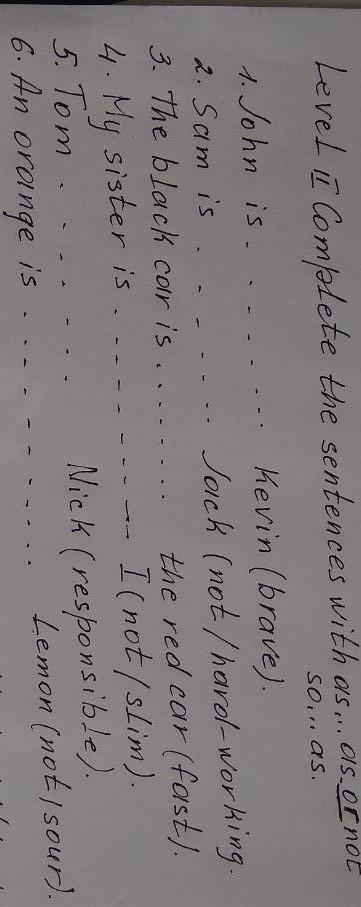 Level II Complete the sentences with as... as or not
so... as.
1. John is . . . . . . . Kevin (brave).
2. Sam is . . . . . . . Jack (not / hard-working.
3. The black car is . . . . . . . the red car (fast).
4. My sister is . . . . . . . I (not / slim).
5. Tom . . . . . . . Nick (responsible).
6. An orange is . . . . . . . . . Lemon (not / sour).